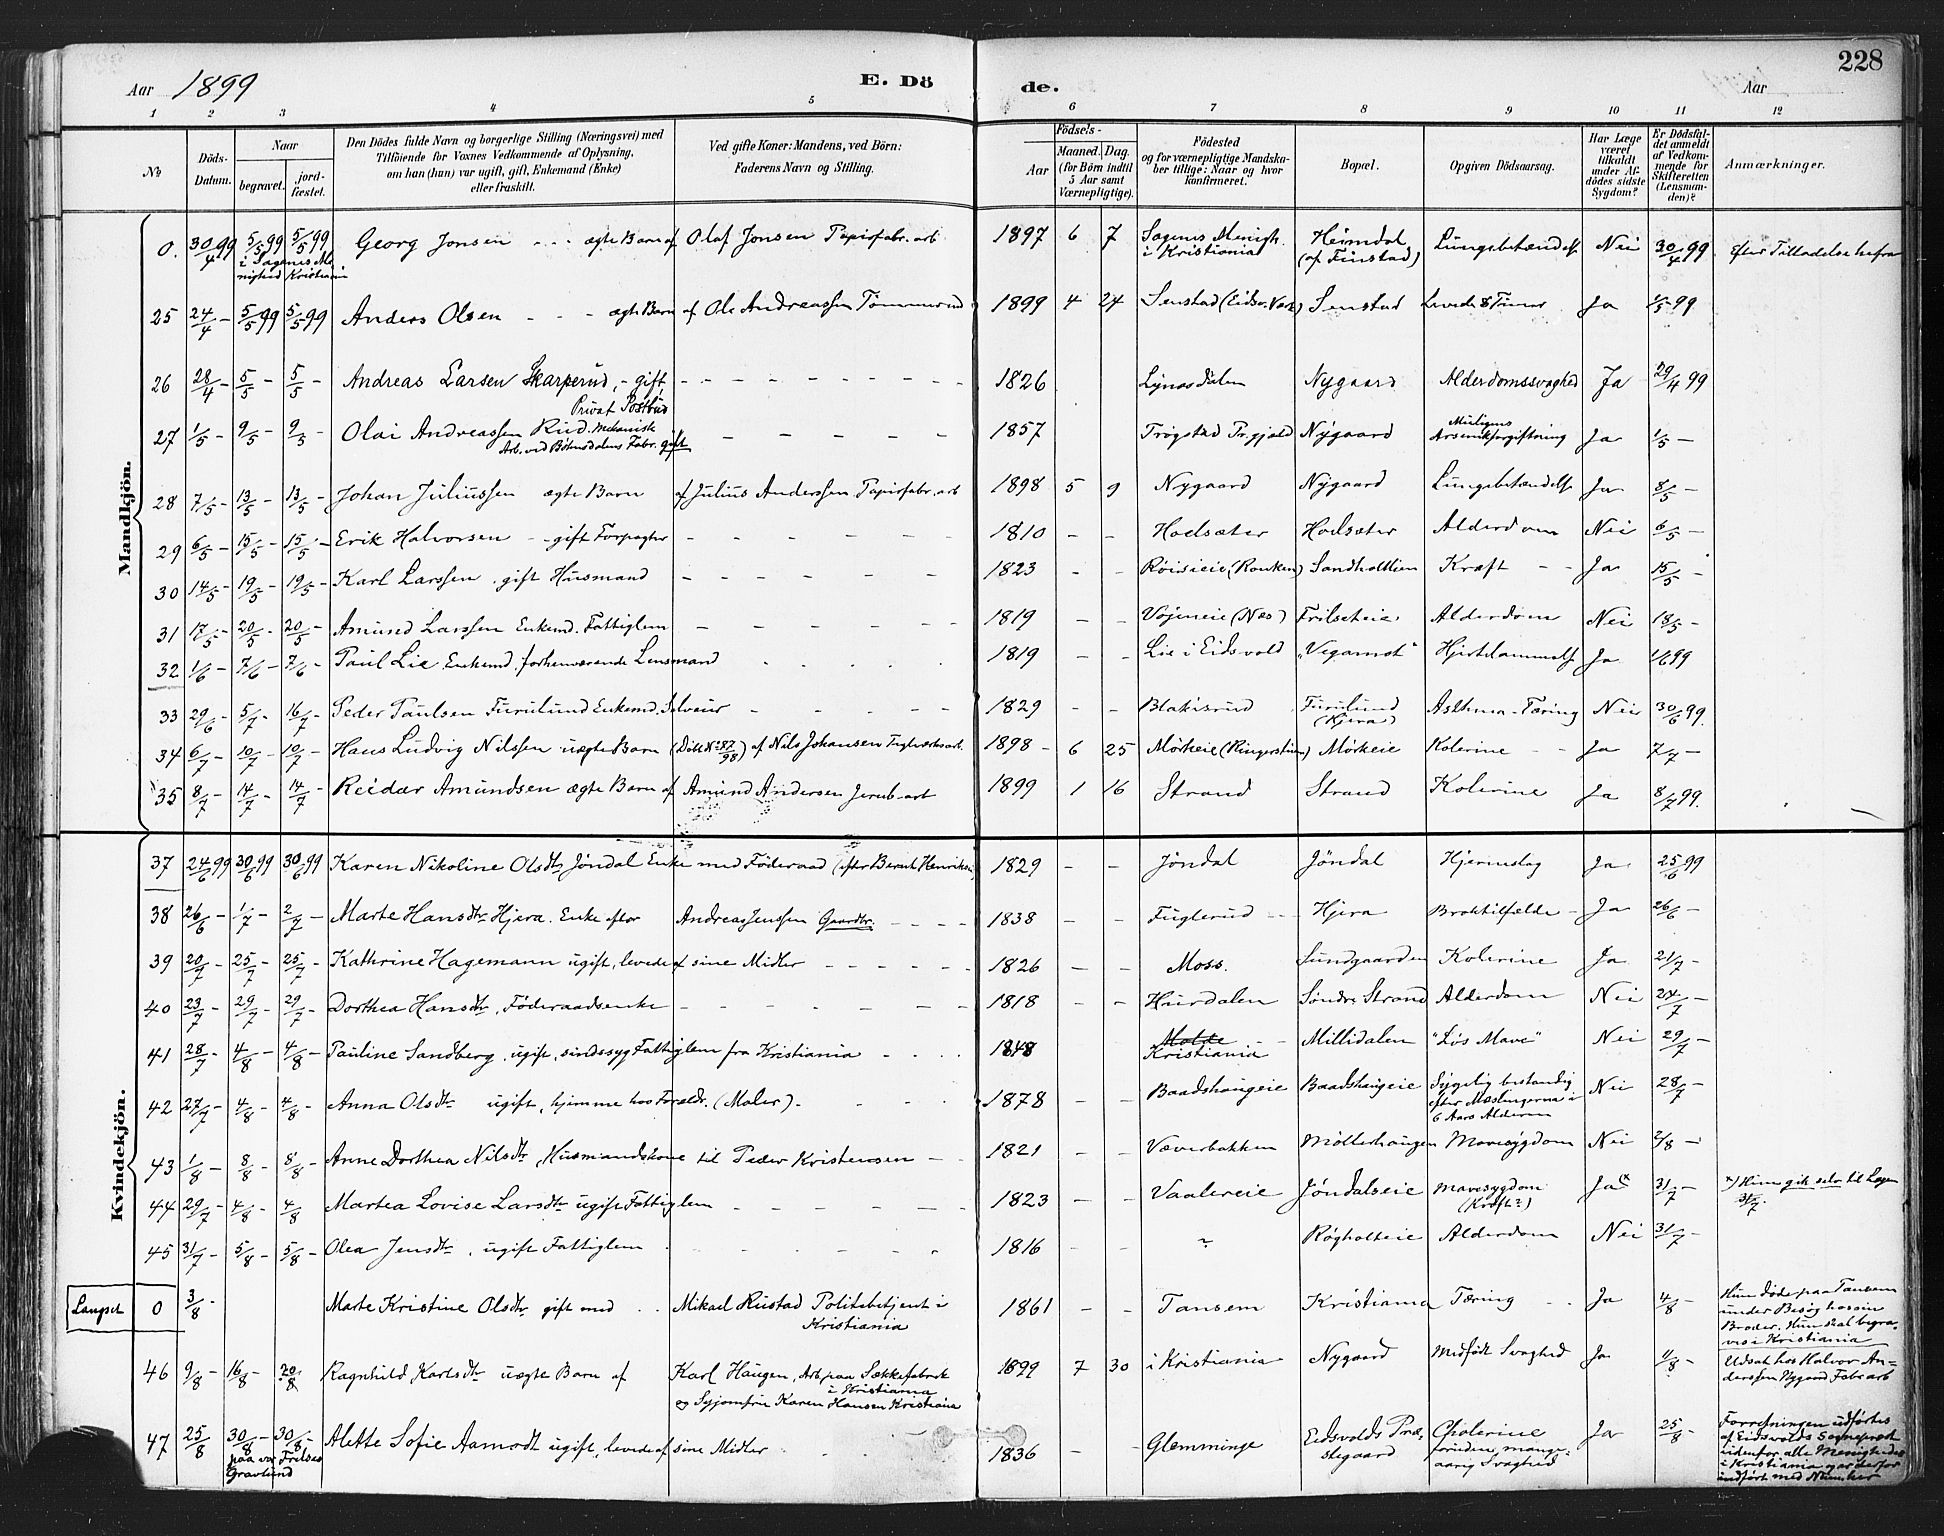 228
Aar 1899
E. Dö de.
Aar
1 2 3 4 5 6 7 8 9 10 11 12
No
Döds-Datum.
Naar
begravet.
jord-fæstet.
Den Dödes fulde Navn og borgerlige Stilling (Næringsvei) med
Tilföiende for Voxnes Vedkommende af Oplysning,
om han (hun) var ugift, gift, Enkemand (Enke)
eller fraskilt.
Ved gifte Koner: Mandens, ved Börn:
Faderens Navn og Stilling.
Födsels-
Aar
Maaned. Dag.
(for Börn indtil
5 Aar samt
Værnepligtige).
Födested
og for værnepligtige Mandska-
ber tillige: Naar og hvor
konfirmeret.
Bopæl.
Opgiven Dödsaarsag.
Har Læge
været
tilkaldt
under Af-
dödes sidste
Sygdom?
Er Dödsfal-
det anmeldt
af Vedkom-
mende for
Skifteretten
(Lensman-
den)?
Anmærkninger.
Mandkjön.
0. 30/4 99 5/5 99 5/5 99 Georg Jonsen - - - ægte Barn af Olaf Jonsen Papirfabr. arb 1897 6 7 Sagenes Menigh. i Kristiania Heimdal (af Finstad) Lungebetændelse Nei 30/4 99 Efter Tilladelse
i Sagenes Menighed Kristiania
25 24/4 - 5/5 99 5/5 99 Anders Olsen - - - ægte Barn af Ole Andreassen Tømmerud 1899 4 24 Senstad (Eidsv. Værk) Senstad Levede 8 Timer Ja 1/5 99
26 28/4 - 5/5 - 5/5 - Andreas Larsen Skarperud, - gift, - - - 1826 Lynesdalen Nygaard Alderdomssvaghed Ja 29/4 99
Privat Postbud
27 1/5 - 9/5 - 9/5 - Olai Andreassen Rud. Mekanisk - - - 1857 Trøgstad Pr.gjæld Nygaard Muligens Arsenikforgiftning Ja 1/5 -
Arb. ved Bøhnsdalens Fabr. gift
28 7/5 - 13/5 - 13/5 - Johan Juliussen ægte Barn af Julius Anderssen Papirfabr. arb 1898 5 9 Nygaard Nygaard Lungebetændelse Ja 8/5 -
29 6/5 - 15/5 - 15/5 - Erik Halvorsen - gift Forpagter - - - 1810 - - Hodsæter Hodsæter Alderdom Nei 6/5 -
30 14/5 - 19/5 - 19/5 - Karl Larssen. gift Husmand - - - 1823 - - Røisieie (Rouken) Sandholtlien Kræft - - Ja 15/5 -
31 17/5 - 20/5 - 20/5 - Amund Larssen Enkemd. Fattiglem - - - 1819 - - Vøieneie (Næs) Frilseteie Alderdom Nei 18/5 -
32 1/6 - 7/6 - 7/6 - Paul Lie Enkemd. forhenværende Lensmand 1819 - - Lie i Eidsvold "Vegamot" Hjertelammelse Ja 1/6 99
33 29/6 - 5/7 - 16/7 - Peder Paulsen Furulund Enkemd. Selveier - - - 1829 - - Blakisrud Furulund (Hjera) Asthma - Tæring Nei 30/6 99.
34 6/7 - 10/7 - 10/7 - Hans Ludvig Nilssen uægte Barn (Døbt No 287/98) af Nils Johansen Teglværksarb. 1898 - 6 25 Mørkeie (Ringerstuen) Mørkeie Kolerine - - Ja 7/7 -
35 8/7 - 14/7 - 14/7 - Reidar Amundsen ægte Barn af Amund Andersen Jernb. arb 1899 1 16 Strand Strand Kolerine Ja 8/7 99.
Kvindekjön.
37 24/6 99 30/6 99 30/6 99 Karen Nikoline Olsdtr Jøndal Enke med Føderaad (efter Bernt Henriksen) 1829 - - Jøndal Jøndal Hjerneslag Ja 25/6 99
38 26/6 - 1/7 - 2/7 - Marte Hansdtr Hjera. Enke efter Andreas Jenssen Gaardbr. - - - 1838 - - Fuglerud - - Hjera Broktilfælde - Ja 26/6 -
39 20/7 - 25/7 - 25/7 - Kathrine Hagemann ugift, levede af sine Midler - - - 1826 - - Moss. Sundgaarden Kolerine Ja 21/7 -
40 23/7 - 29/7 - 29/7 - Dorthea Hansdtr, Føderaadsenke - - - 1818 - - Hurdalen Søndre Strand Alderdom Nei 24/7 -
41 28/7 - 4/8 - 4/8 - Pauline Sandberg, ugift, sindssyg Fattiglem fra Kristiania - - - 1848 Molde Kristiania Millidalen "Løs Mave" Nei 29/7 -
42 27/7 - 4/8 - 4/8 - Anna Olsdtr ugift, hjemme hos Forældr. (Maler) - 1878 - - Baadshaugeie Baadshaugeie Sygelig bestandig efter Mæslingerne i 6 Aars Alderen Nei 28/7 -
43 1/8 - 8/8 - 8/8 - Anne Dorthea Nilsdtr, Husmandskone til Peder Kristensen - - 1821 - - Væverbakken Møllerhaugen Mavesygdom Nei 2/8 -
44 29/7 - 4/8 - 4/8 Martea Lovise Larsdtr ugift Fattiglem - - - 1823 - - Vaalereie Jøndalseie Mavesygdom (Kræft?) Ja* 31/7 - *) Hun gik selv til Lægen 31/7.
45 31/7 - 5/8 - 5/8 - Olea Jensdtr, ugift Fattiglem - - - 1816 - - ? Røgholteie Alderdom Nei 31/7 -
Langset 0 3/8 - Marte Kristine Olsdtr gift med Mikael Rustad Politibetjent i Kristiania 1861 - - Tansem Kristiania Tæring - - Ja 4/8 - Hun døde paa Tansem
under Besøg hos sin
Broder. Hun skal begra-
ves i Kristiania
46 9/8 - 16/8 - 20/8 Ragnhild Karlsdtr uægte Barn af Karl Haugen, Arb. paa Sækkefabrik i Kristiania 1899 7 30 i Kristiania Nygaard Medfødt Svaghed Ja 11/8 - Udsat hos Halvor An-
og Syjomfru Karen Hansen Kristiania
derssen Nygaard Fabr arb
47 25/8 30/8 - 30/8 - Alette Sofie Aamodt ugift, levede af sine Midler 1836 - - Glemminge Eidsvolds Præstegaard Cholerine foruden mange-aarig Svaghed Ja 25/8 - Forretningen udførtes
paa vor Frelses Gravlund
af Eidsvolds Sogneprest
udenfor alle Menigheder
i Kristiania og er derfor
indført med Nummer